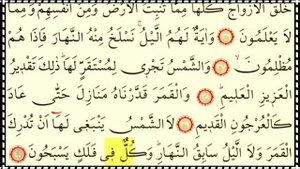 خَلَقَ الْاَزْوَاجَ كُلَّهَا مِمَّا تُنْبِتُ الْاَرْضُ وَمِنْ اَنْفُسِهِمْ وَمِمَّا
لَا يَعْلَمُونَ وَاٰيَةٌ لَهُمُ الَّيْلُ نَسْلَخُ مِنْهُ النَّهَارَ فَاِذَا هُمْ
مُظْلِمُونَ وَالشَّمْسُ تَجْرٖى لِمُسْتَقَرٍّ لَهَا ذٰلِكَ تَقْدٖيرُ
الْعَزٖيزِ الْعَلٖيمِ وَالْقَمَرَ قَدَّرْنَاهُ مَنَازِلَ حَتّٰى عَادَ
كَالْعُرْجُونِ الْقَدٖيمِ لَا الشَّمْسُ يَنْبَغٖى لَهَا اَنْ تُدْرِكَ
الْقَمَرَ وَلَا الَّيْلُ سَابِقُ النَّهَارِ وَكُلٌّ فٖى فَلَكٍ يَسْبَحُونَ